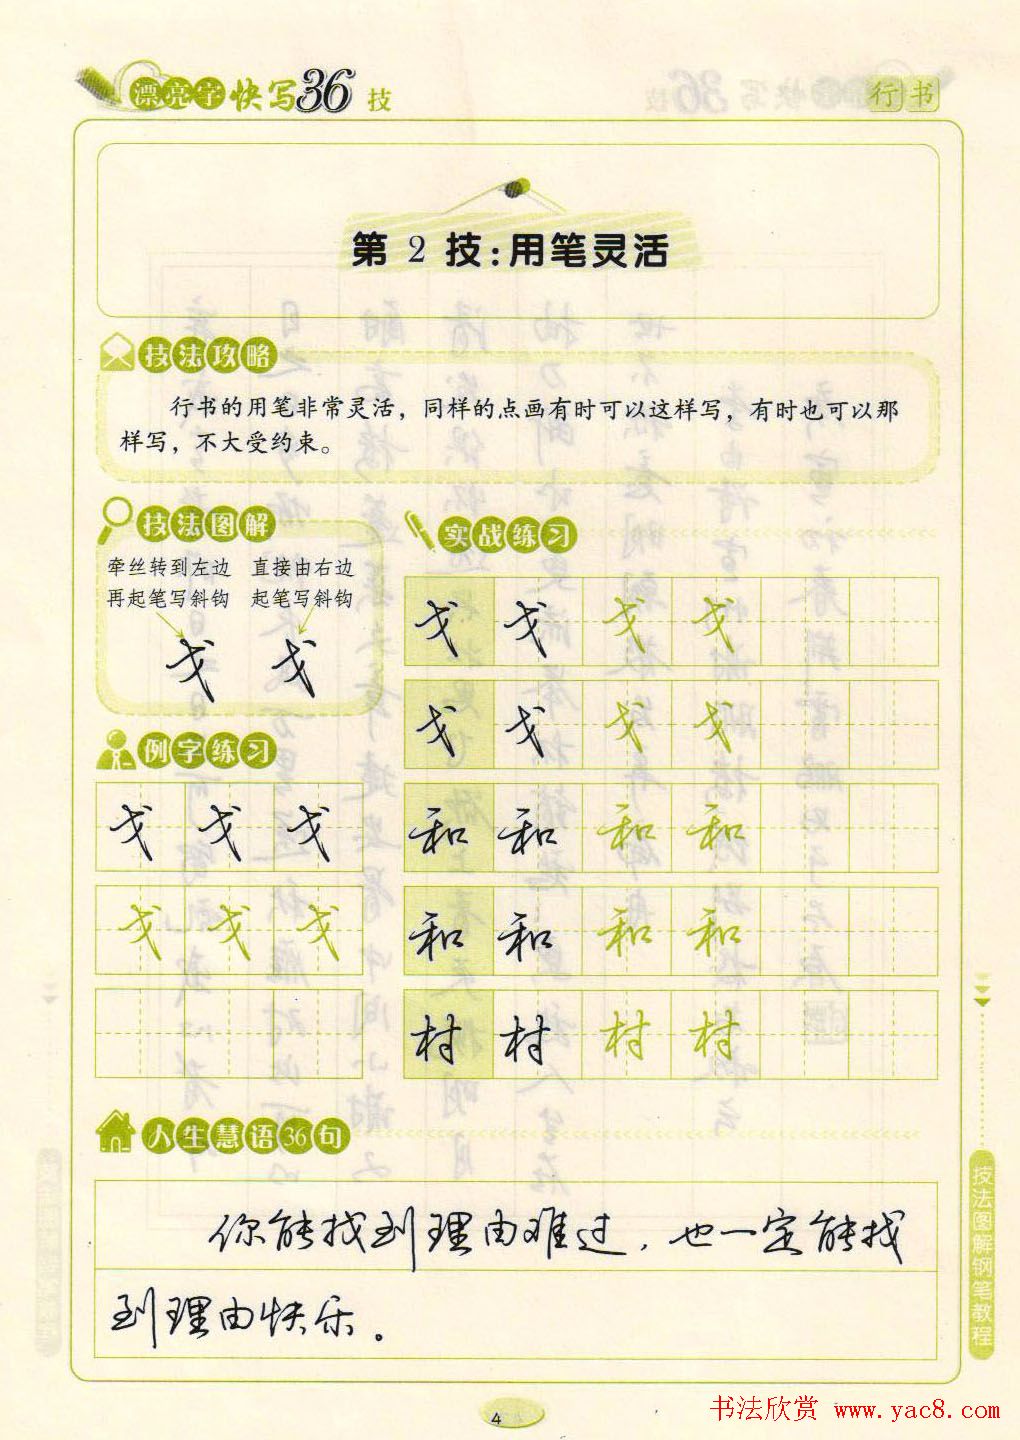 漂亮字快写36技
行书
第 2 技:用笔灵活
技法攻略
行书的用笔非常灵活，同样的点画有时可以这样写，有时也可以那
样写，不大受约束。
技法图解
牵丝转到左边
再起笔写斜钩
直接由右边
起笔写斜钩
戈 戈
例字练习
戈 戈 戈
戈 戈 戈
实战练习
戈 戈 戈 戈
戈 戈 戈 戈
和 和 和 和
和 和 和 和
村 村 村 村
人生慧语36句
你能找到理由难过，也一定能找
到理由快乐。
技法图解钢笔教程
4
书法欣赏 www.yac8.com